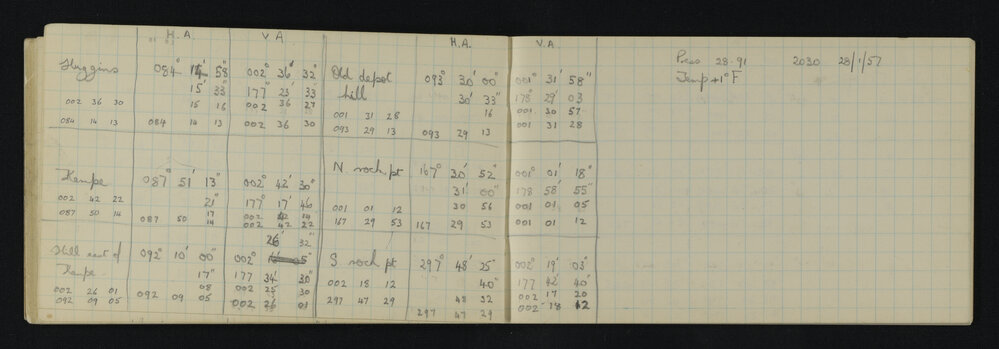 H.A. V.A.
Huggins 084° 14' 58" 002° 36' 32"
15' 33" 177 23 33
002 36 30 15 16 002 36 27
084 14 13 084 14 13 002 36 30
Kempe 087° 51' 13" 002° 42' 30"
21" 177° 17' 46
002 42 22 17 002 42 14
087 50 14 087 50 14 002 42 22
26' 32"
Hill east of 092° 10' 00" 002°
Kempe 17" 177 34' 30"
002 26 01 08 002 25 30
092 09 05 092 09 05 002 26 01
H.A. V.A.
Old depot 093° 30' 00" 001° 31' 58"
hill 30' 33" 178° 29' 03
001 31 28 16 001 30 57
093 29 13 093 29 13 001 31 28
N. rock pt 167° 30' 52" 001° 01' 18"
31' 00" 178 58' 55"
001 01 12 30 56 001 01 05
167 29 53 167 29 53 001 01 12
S rock pt 297° 48' 25" 002° 19' 03"
002 18 12 40" 177 42' 40"
297 47 29 48 32 002 17 20
297 47 29 002 18 12
Pess 28.91 2030 28/1/57
Temp +1°F